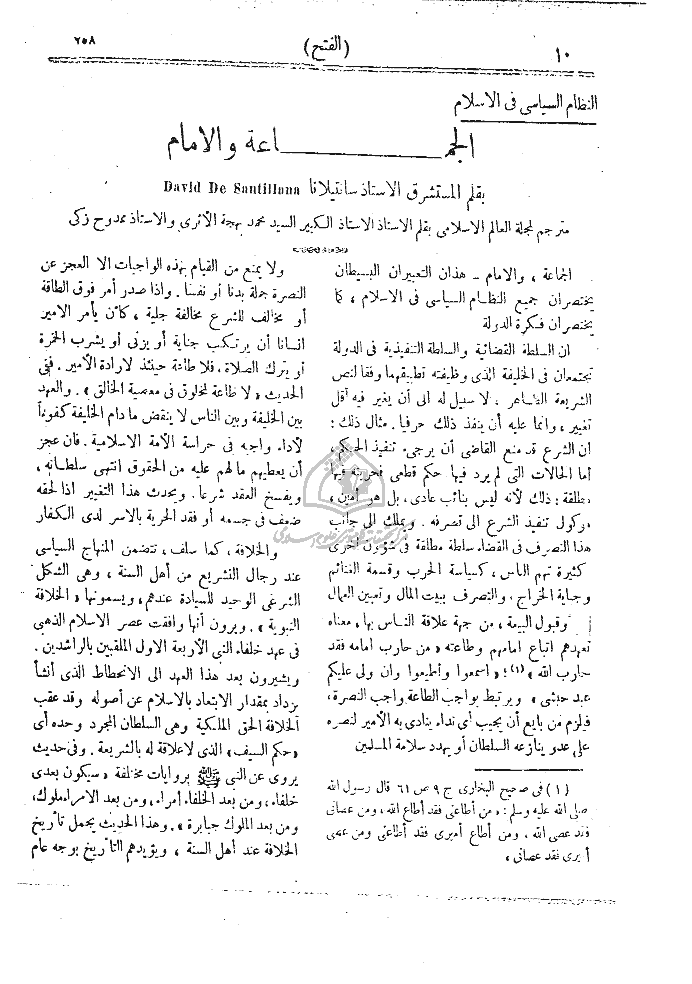 ١٠
(الفتح)
٢٥٨
النظام السياسى فى الاسلام
الجمـــــــاعة والامام
بقلم المستشرق الاستاذ سانتيلانا David De Santillana
مترجم لمجلة العالم الاسلامى بقلم الاستاذ الاستاذ الكبير السيد محمد بهجة الأثرى والاستاذ ممدوح زكى
الجماعة ، والامام ـ هذان التعبيران البسيطان
يختصران جميع النظام السياسى فى الاسلام ، كما
يختصران فكرة الدولة
ان السلطة القضائية والسلطة التنفيذية فى الدولة
تجتمعان فى الخليفة الذى وظيفته تطبيقهما وفقا لنص
الشريعة الظاهر ، لا سبيل له الى أن يغير فيه أقل
تغيير ، وانما عليه أن ينفذ ذلك حرفيا . مثال ذلك :
ان الشرع قد منع القاضى أن يرجىء تنفيذ الحكم ،
أما الحالات التى لم يرد فيها حكم قطعى فحريته فيها
مطلقة : ذلك لأنه ليس بنائب عادى ، بل هو أمين ،
موكول تنفيذ الشرع الى تصرفه . ويملك الى جانب
هذا التصرف فى القضاء سلطة مطلقة فى شؤون أخرى
كثيرة تهم الناس ، كسياسة الحرب وقسمة الغنائم
وجباية الخراج ، والتصرف ببيت المال وتعيين العمال
وقبول البيعة ، من جهة علاقة الناس بها ، معناه
تعهدهم اتباع امامهم وطاعته « من حارب امامه فقد
حارب الله » (١) ؛ « اسمعوا وأطيعوا وان ولى عليكم
عبد حبشى » ويرتبط بواجب الطاعة واجب النصرة ،
فيلزم من بايع أن يجيب أى نداء ينادى به الأمير لنصره
على عدو ينازعه السلطان أو يهدد سلامة المسلمين
(١) فى صحيح البخارى ج ٩ ص ٦١ قال رسول الله
صلى الله عليه وسلم : « من أطاعنى فقد أطاع الله ، ومن عصانى
فقد عصى الله ، ومن أطاع أميرى فقد أطاعنى ومن عصى
أميرى فقد عصانى ،
ولا يمنع من القيام بهذه الواجبات الا العجز عن
النصرة جملة بدنا أو نفسا . واذا صدر أمر فوق الطاقة
أو مخالف للشرع مخالفة جلية ، كأن يأمر الامير
انسانا أن يرتكب جناية أو يزنى أو يشرب الخمرة
أو يترك الصلاة . فلا طاعة حينئذ لارادة الأمير . ففى
الحديث « لا طاعة لمخلوق فى معصية الخالق » . والعهد
بين الخليفة وبين الناس لا ينقض ما دام الخليفة كفوءاً
لأداء واجبه فى حراسة الأمة الاسلامية . فان عجز
أن يعطيهم مالهم عليه من الحقوق انتهى سلطانه ،
وبفسخ العقد شرعا . ويحدث هذا التغيير اذا لحقه
ضعف فى جسمه أو فقد الحرية بالاسر لدى الكفار
والخلافة ، كما سلف ، تتضمن المنهاج السياسى
عند رجال التشريع من أهل السنة ، وهى الشكل
الشرعى الوحيد للسيادة عندهم ، ويسمونها « الخلافة
النبوية » . ويرون أنها وافقت عصر الاسلام الذهبى
فى عهد خلفاء النبى الأربعة الاول الملقبين بالراشدين .
ويشيرون بعد هذا العهد الى الانحطاط الذى أنشأ
يزداد بمقدار الابتعاد بالاسلام عن أصوله وقد عقب
الخلافة الحق الملكية وهى السلطان المجرد وحده أى
« حكم السيف » الذى لا علاقة له بالشريعة . وفى حديث
يروى عن النبى ﷺ بروايات مختلفة « سيكون بعدى
خلفاء ، ومن بعد الخلفاء أمراء ، ومن بعد الامراء ملوك ،
ومن بعد الملوك جبابرة » . وهذا الحديث يجمل تأريخ
الخلافة عند أهل السنة ، ويؤيدهم التأريخ بوجه عام